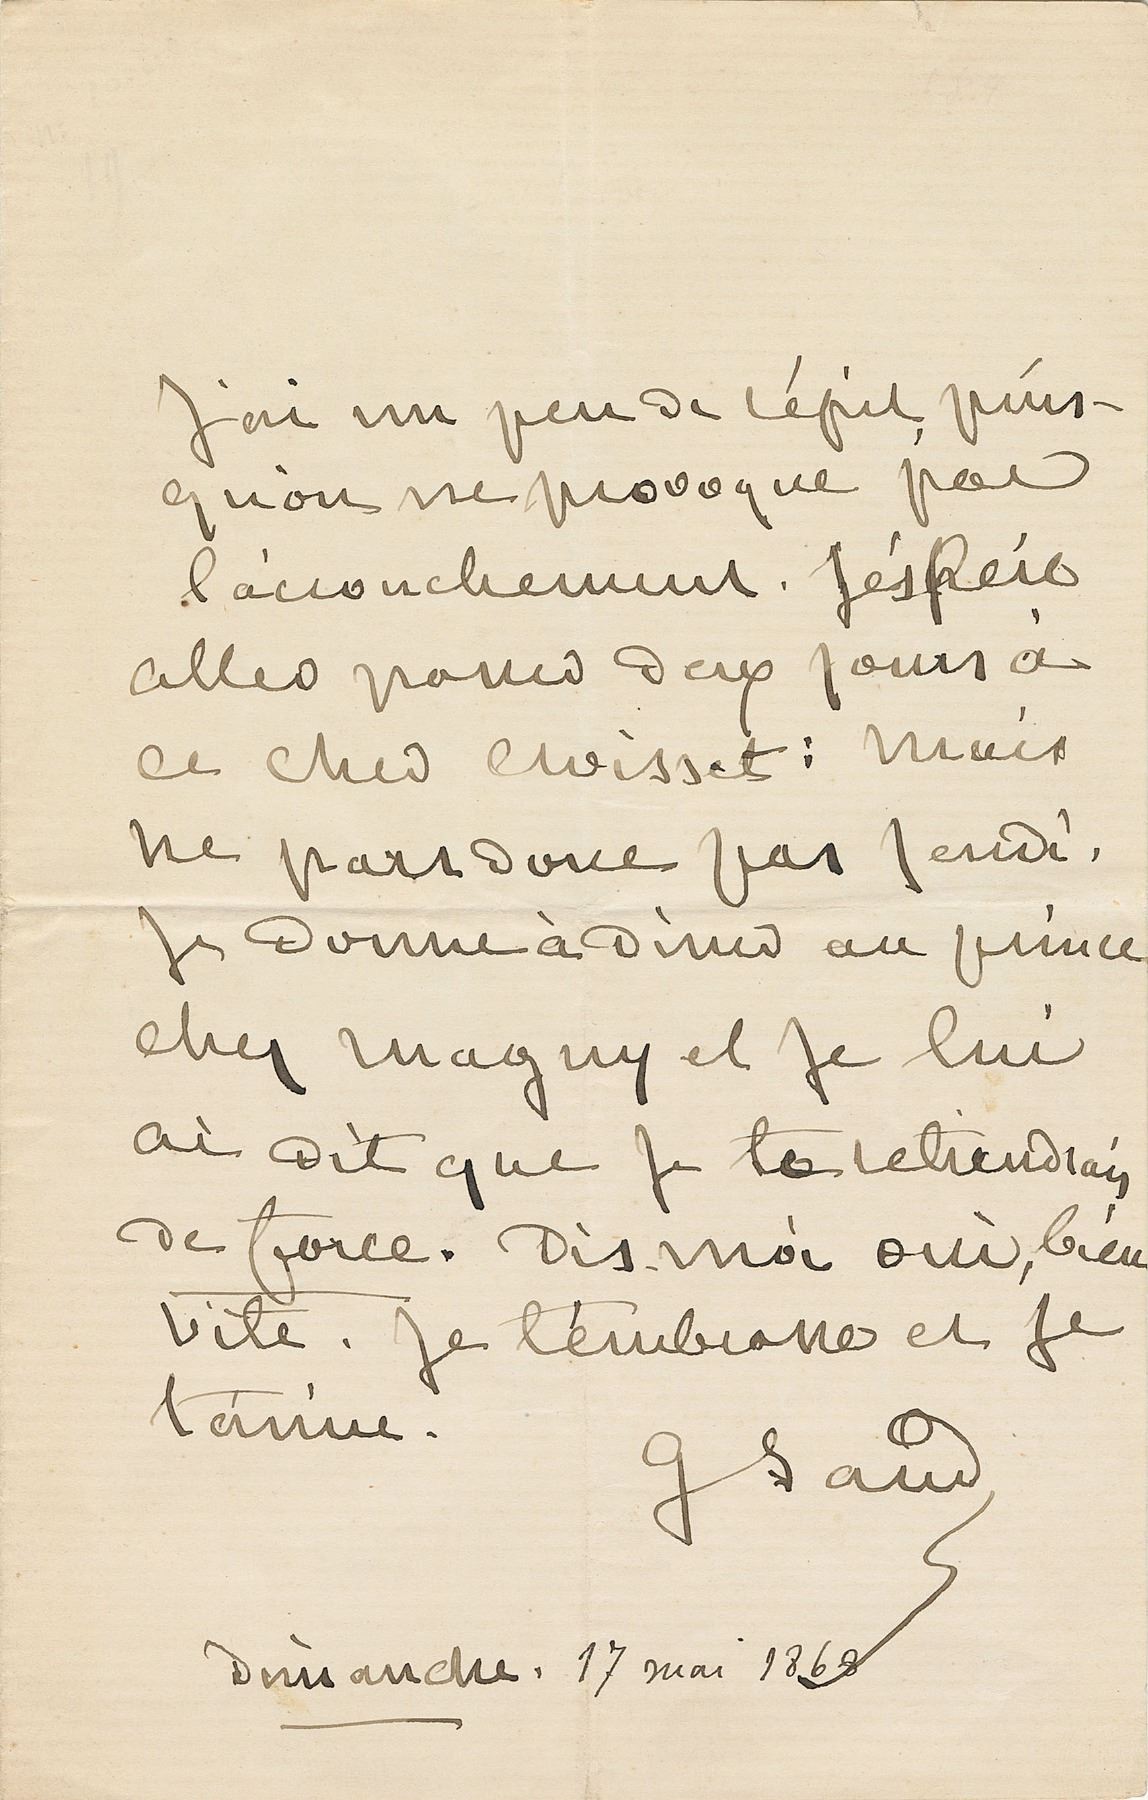 J'ai un peu de répit, puis-
qu'on ne provoque pas
l'accouchement. J'espère
aller passer deux jours à
ce cher Croisset : mais
ne pars donc pas Jeudi.
Je donne à diner au prince
chez Magny et Je lui
ai dit que Je te retiendrais
de force. Dis-moi oui, bien
vite. Je t'embrasse et Je
t'aime.
G Sand
Dimanche. 17 mai 1868